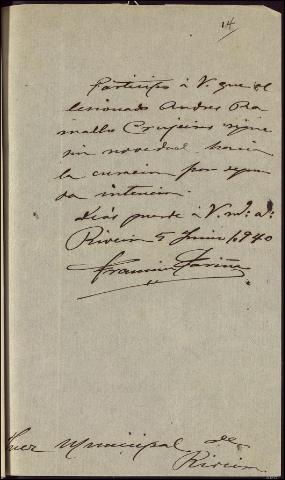 14
Participo á V. que el
lesionado Andres Ra
mallo Crujeiras sigue
sin novedad, hacia
la curacion por segun
da intencion.
Dios guarde á V. m. a.
Riveira 5 Junio 1940
Francisco Fariña
Juez Municipal de
Riveira